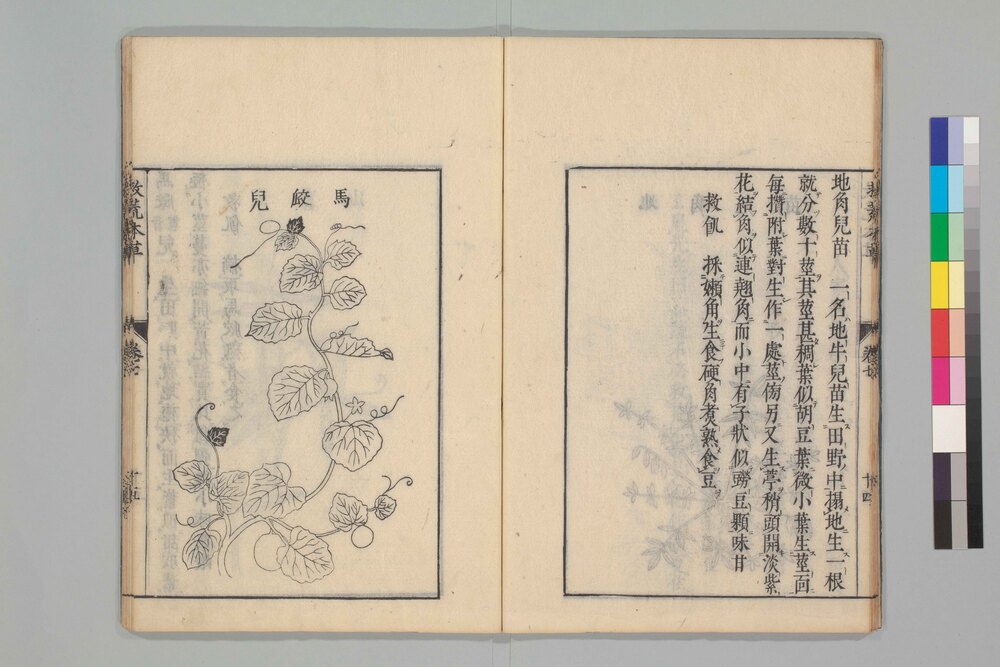 地角兒苗　一名地牛兒苗生田野中搨地生一根
就分數十莖其莖甚稠葉似胡豆葉微小葉生莖面
每攢附葉對生作一處莖傍另又生葶稍頭開淡紫
花結角似連翹角而小中有子狀似䝁豆顆味甘
救飢　採嫩角生食硬角煮熟食豆
十四
馬㼎兒
救荒本草
卷七